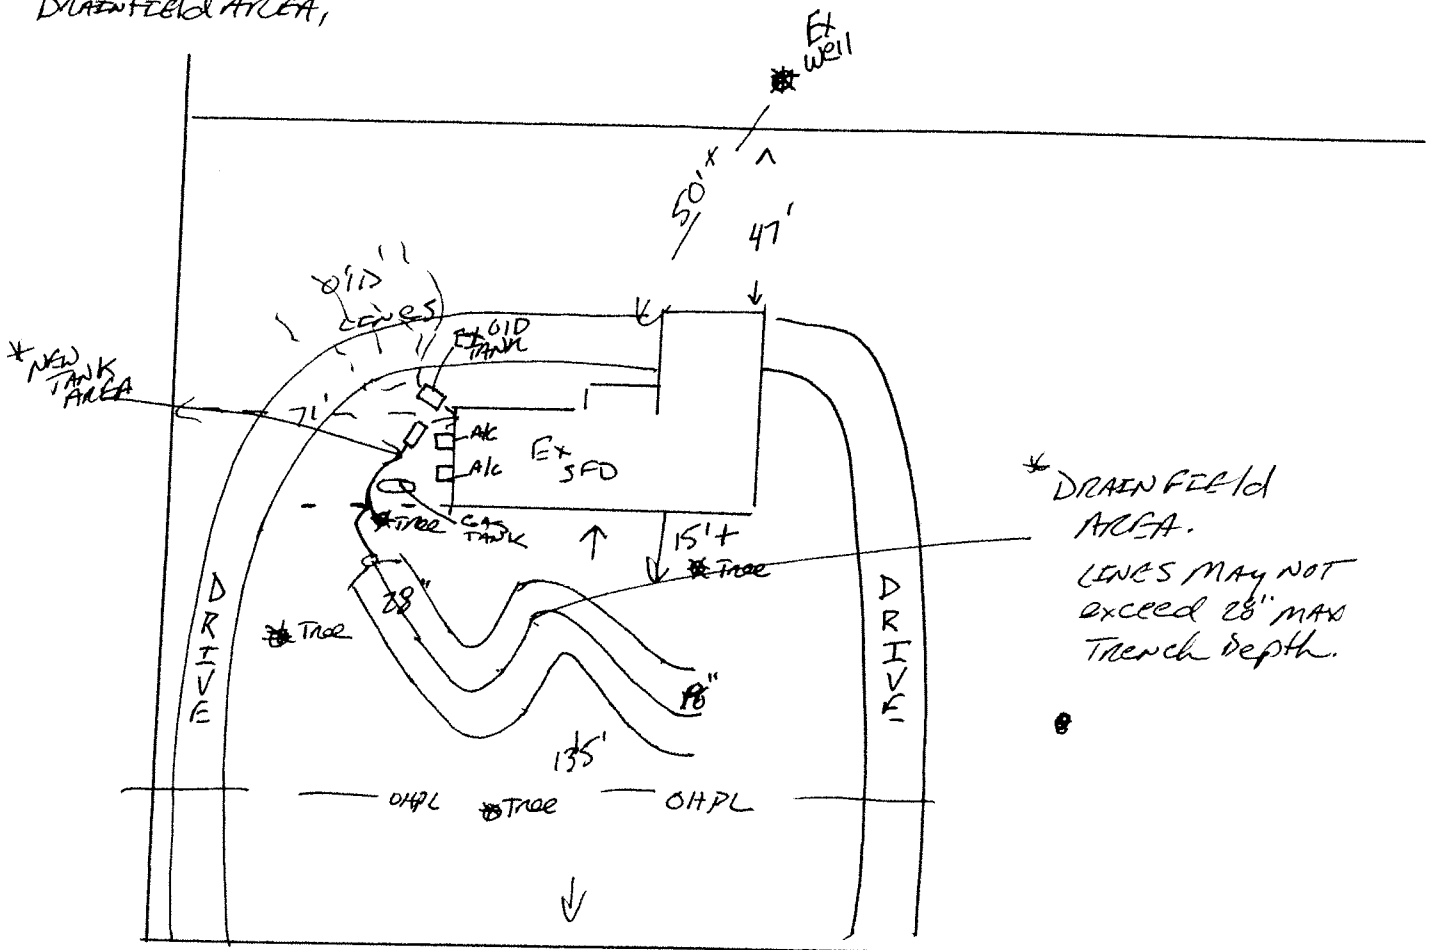 DRAINFIELD AREA,
Ex
well
50'
47'
OLD
LINES
Ex OLD
TANK
* NEW
TANK
AREA
71'
A/C
A/C
Ex
SFD
Tree
GAS
TANK
15'+
Tree
* DRAINFIELD
AREA.
LINES MAY NOT
exceed 28" MAX
Trench Depth.
28"
Tree
DRIVE
DRIVE
135'
OHPL
Tree
OHPL